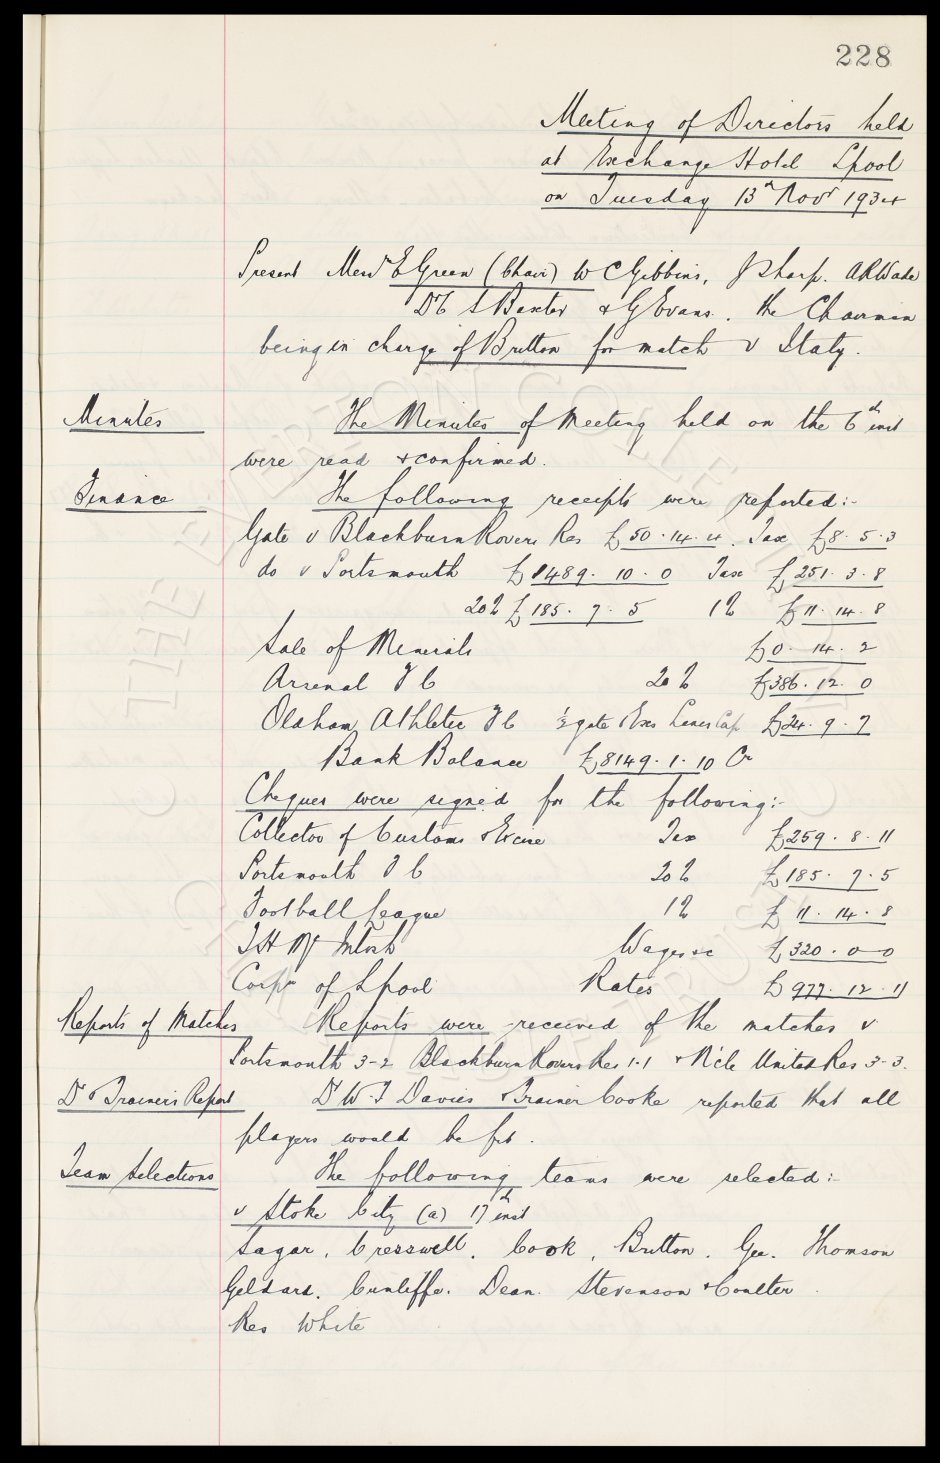 228
Meeting of Directors held
at Exchange Hotel Lpool
on Tuesday 13th Novr 1934
Present Messrs E Green (Chair) W C Gibbins, J Sharp. A R Wade
Dr C S Baxter & G Evans. the Chairman
being in charge of Britton for match v Italy.
Minutes The Minutes of Meeting held on the 6th inst
were read & confirmed.
Finance The following receipts were reported:-
Gate v Blackburn Rovers Res £50.14.4. Tax £8.5.3
do v Portsmouth £1489.10.0 Tax £251.3.8
20% £185.7.5 1% £11.14.8
Sale of Minerals £0.14.2
Arsenal F C 20% £386.12.0
Oldham Athletic F C ½ gate Exes Lancs Cup £24.9.7
Bank Balance £8149.1.10 Cr
Cheques were signed for the following:-
Collector of Customs & Excise Tax £259.8.11
Portsmouth F C 20% £185.7.5
Football League 1% £11.14.8
T H McIntosh Wages &c £320.0.0
Corpn of Lpool Rates £977.12.11
Reports of Matches Reports were received of the matches v
Portsmouth 3-2 Blackburn Rovers Res 1-1 & N'cle United Res 3-3.
Dr & Trainer's Report Dr W. J Davies & Trainer Cooke reported that all
players would be fit.
Team Selections The following teams were selected:-
v Stoke City (a) 17th inst
Sagar, Cresswell, Cook, Britton, Gee. Thomson
Geldard. Cunliffe. Dean. Stevenson & Coulter.
Res White
THE EVERTON COLLECTION
CHARITABLE TRUST